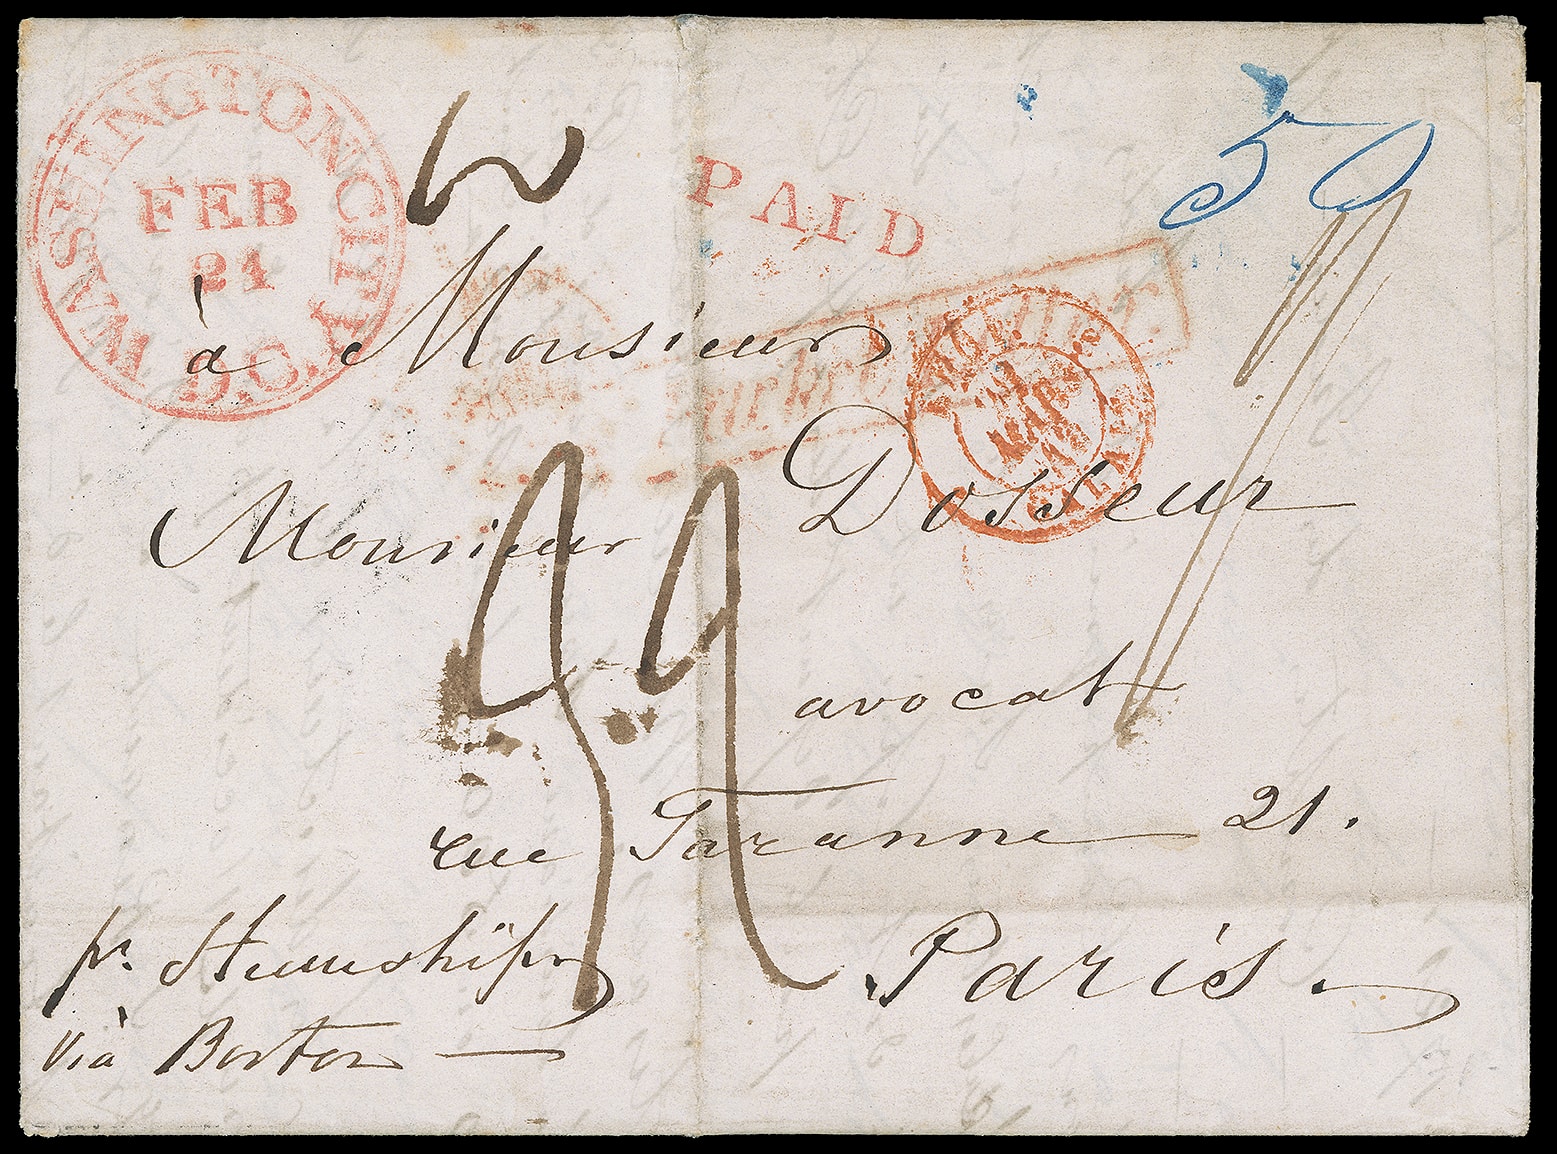 WASHINGTON CITY D.C.
FEB
21
PAID
50
à Monsieur
Monsieur Dosseur
avocat
rue Taranne 21.
Paris.
pr. Steamship
via Boston